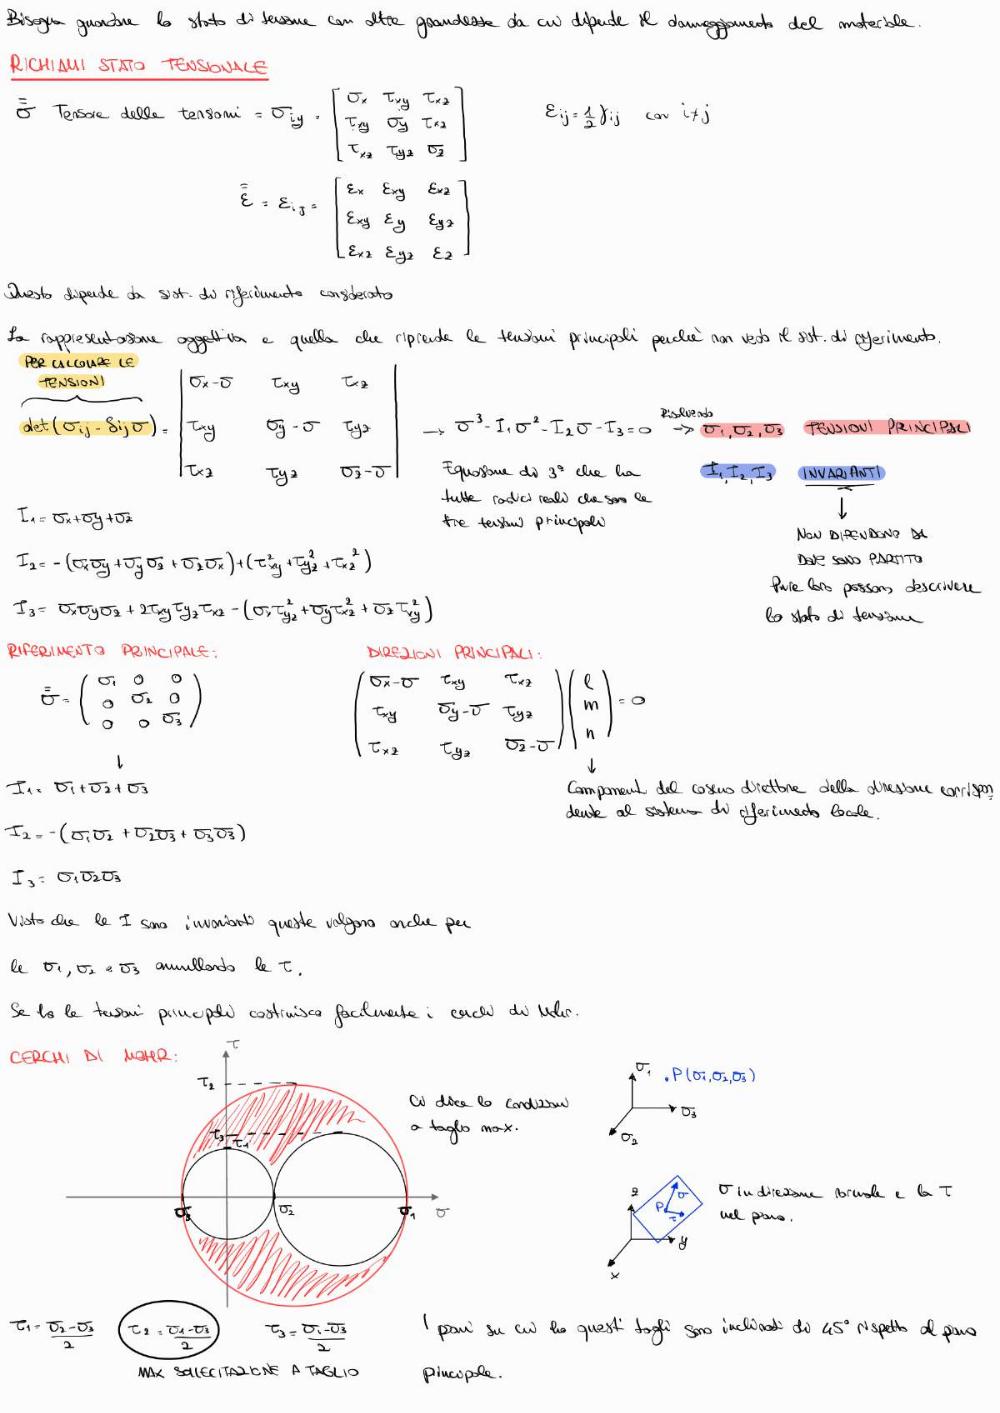 Bisogna guardare lo stato di tensione con altre grandezze da cui dipende il danneggiamento del materiale.
RICHIAMI STATO TENSIONALE
σ̿ Tensore delle tensioni = σiy = [σx τxy τxz
τxy σy τxz
τxz τyz σz]
εij = 1/2 γij con i≠j
ε̿ = εij = [εx εxy εxz
εxy εy εyz
εxz εyz εz]
Questo dipende da sist. di riferimento considerato
La rappresentazione oggettiva è quella che riprende le tensioni principali perchè non vedo il sist. di riferimento.
PER CALCOLARE LE
TENSIONI
det(σij - δijσ) = |σx-σ τxy τxz
τxy σy-σ τyz
τxz τyz σz-σ|
→ σ³-I1σ²-I2σ-I3=0
Risolvendo
→ σ1,σ2,σ3 TENSIONI PRINCIPALI
Equazione di 3° che ha
tutte radici reali che sono le
tre tensioni principali
I1,I2,I3 INVARIANTI
NON DIPENDONO DA
DOVE SONO PARTITO
Pure loro possono descrivere
lo stato di tensione
I1= σx+σy+σz
I2= -(σxσy+σyσz+σzσx)+(τ²xy+τyz²+τxz²)
I3= σxσyσz+2τxyτyzτxz-(σxτyz²+σyτxz²+σzτxy²)
RIFERIMENTO PRINCIPALE:
σ̿ = (σ1 0 0
0 σ2 0
0 0 σ3)
↓
I1= σ1+σ2+σ3
I2=-(σ1σ2+σ2σ3+σ3σ3)
I3= σ1σ2σ3
DIREZIONI PRINCIPALI:
(σx-σ τxy τxz
τxy σy-σ τyz
τxz τyz σz-σ) (l
m
n) = 0
↓
Componenti del coseno direttore della direzione corrispon
dente al sistema di riferimento locale.
Visto che le I sono invarianti queste valgono anche per
le σ1, σ2 e σ3 annullando le τ.
Se ho le tensioni principali costruisco facilmente i cerchi di Mohr.
CERCHI DI MOHR:
τ
τ2
τ3
τ1
σ3
σ2
σ1
σ
Ci dice le condizioni
a taglio max.
σ1
.P(σ1,σ2,σ3)
σ3
σ2
z
P
σ
τ
y
x
σ in direzione normale e la τ
nel piano.
τ1= σ2-σ3/2
τ2 = σ1-σ3/2
τ3= σ1-σ3/2
MAX SOLLECITAZIONE A TAGLIO
I piani su cui ho questi tagli sono inclinati di 45° rispetto al piano
principale.